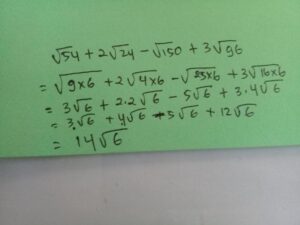 √54 + 2√24 − √150 + 3√96
= √9×6 + 2√4×6 − √25×6 + 3√16×6
= 3√6 + 2.2√6 − 5√6 + 3.4√6
= 3√6 + 4√6 − 5√6 + 12√6
= 14√6